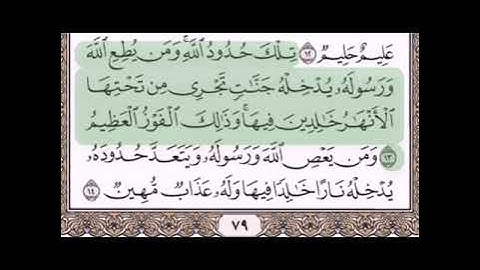 عَلِيمٌ حَلِيمٌ ١٢ تِلْكَ حُدُودُ ٱللَّهِ ۚ وَمَن يُطِعِ ٱللَّهَ
وَرَسُولَهُۥ يُدْخِلْهُ جَنَّٰتٍ تَجْرِى مِن تَحْتِهَا
ٱلْأَنْهَٰرُ خَٰلِدِينَ فِيهَا ۚ وَذَٰلِكَ ٱلْفَوْزُ ٱلْعَظِيمُ
١٣ وَمَن يَعْصِ ٱللَّهَ وَرَسُولَهُۥ وَيَتَعَدَّ حُدُودَهُۥ
يُدْخِلْهُ نَارًا خَٰلِدًا فِيهَا وَلَهُۥ عَذَابٌ مُّهِينٌ ١٤
٧٩